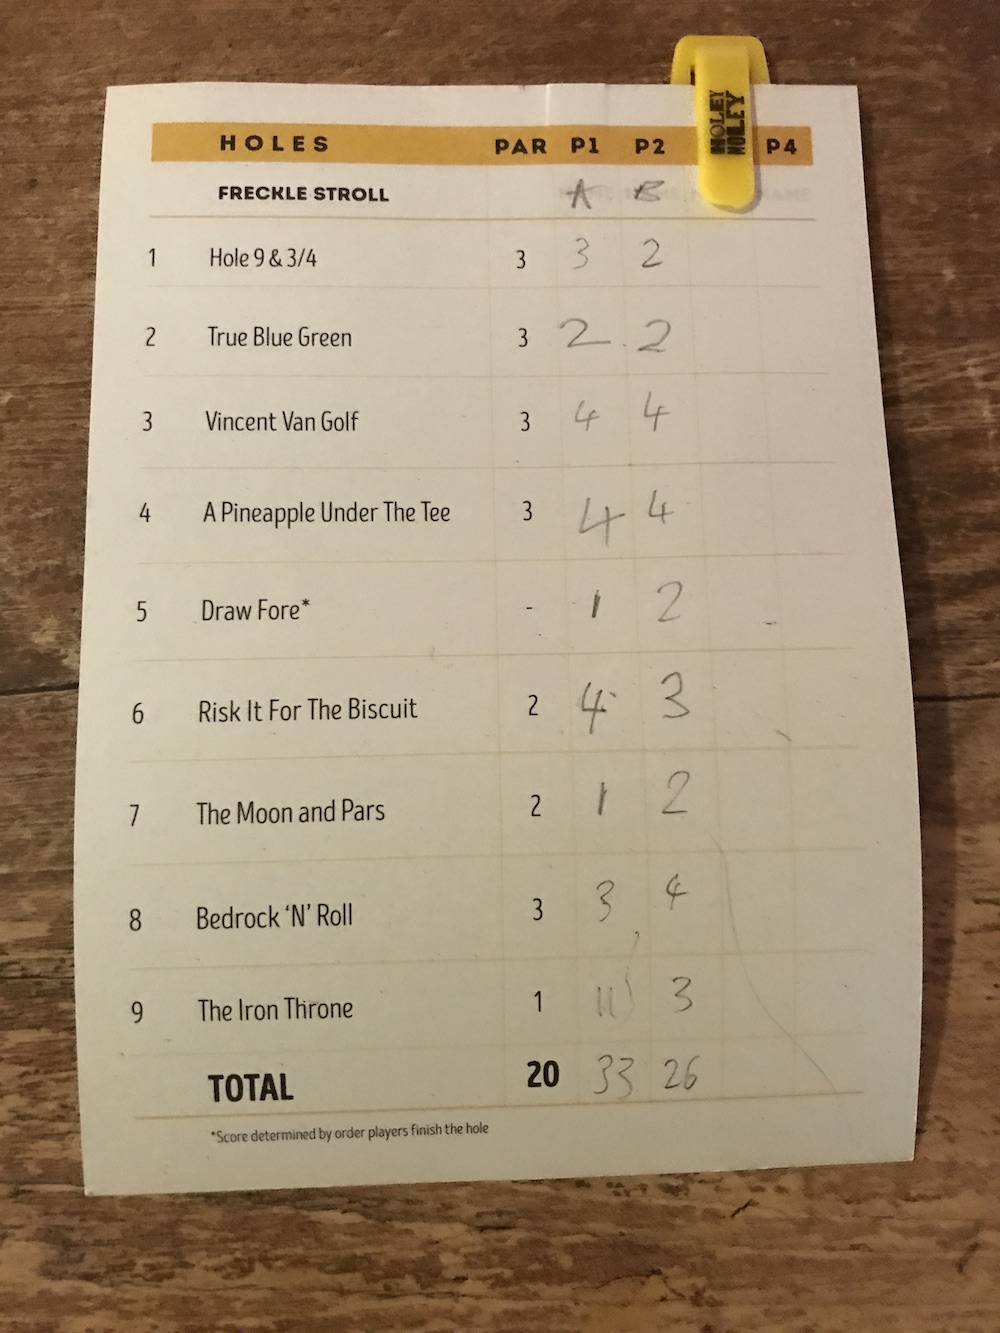 HOLEY MOLEY
HOLES PAR P1 P2 P4
FRECKLE STROLL A B NAME
1 Hole 9 & 3/4 3 3 2
2 True Blue Green 3 2 2
3 Vincent Van Golf 3 4 4
4 A Pineapple Under The Tee 3 4 4
5 Draw Fore* - 1 2
6 Risk It For The Biscuit 2 4 3
7 The Moon and Pars 2 1 2
8 Bedrock 'N' Roll 3 3 4
9 The Iron Throne 1 11 3
TOTAL 20 33 26
*Score determined by order players finish the hole